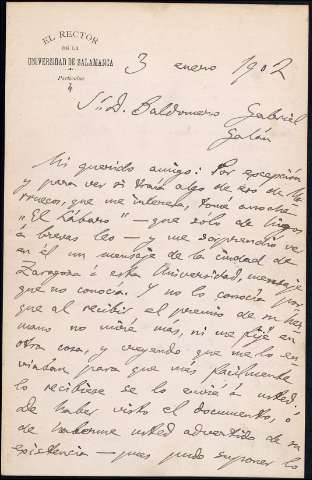 EL RECTOR
DE LA
UNIVERSIDAD DE SALAMANCA
Particular
3 enero 1902
Sr. D. Baldomero Gabriel
Galán
Mi querido amigo: Por excepción
y para ver si traía algo de eso de
que me interesa, tomé anoche
"El Lábaro" — que sólo de higos
á brevas leo — y me sorprendió ver
en él un mensaje de la ciudad de
Zaragoza á esta Universidad, mensaje
que no conocía. Y no lo conocía por-
que al recibir el premio de su her-
mano no miré mas, ni me fijé en
otra cosa, y creyendo que me lo en-
viaban para que más facilmente
lo recibiese se lo envié á usted.
De haber visto el documento, ó
de haberme usted advertido de su
existencia — pues pudo suponer lo